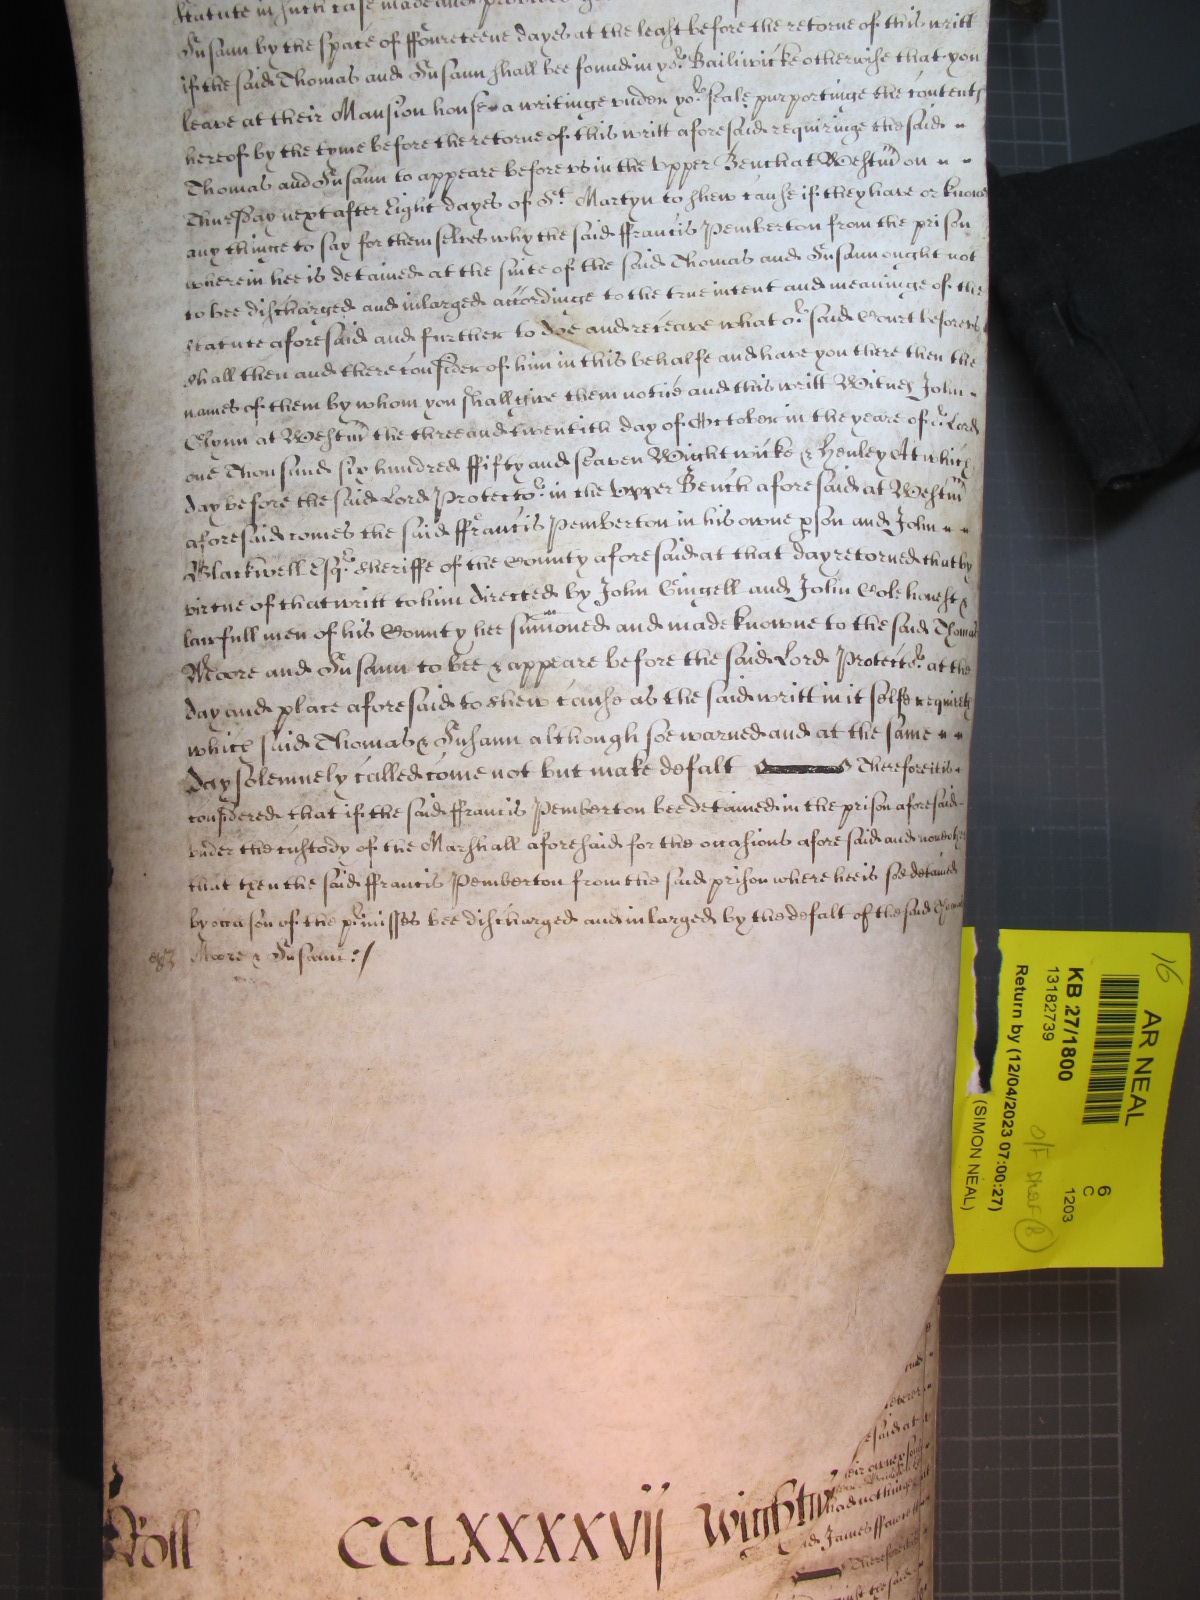 Statute in such case made and provided
Susann by the space of ffoureteene dayes at the least before the retorne of this writt
if the said Thomas and Susann shall bee found in yor Bailiwicke otherwise that you
leave at their Mansion house a writinge under yor seale purportinge the contents
hereof by the tyme before the retorne of this writt aforesaid requiringe the said
Thomas and Susann to appeare before us in the Upper Bench at Westm on
Thursday next after Eight dayes of St. Martyn to shew cause if they have or know
any thinge to say for themselves why the said ffrancis Pemberton from the prison
wherein hee is detained at the suite of the said Thomas and Susann ought not
to bee discharged and inlarged accordinge to the true intent and meaninge of the
statute aforesaid and further to doe and receave what or said Court before us
shall then and there consider of him in this behalfe and have you there then the
names of them by whom you shall give them notice and this writt Witnes John
Glynn at Westm the three and twentith day of October in the yeare of or Lord
one Thousand six hundred ffifty and seaven Wightwicke & Henley At which
day before the said Lord Protector in the Upper Bench aforesaid at Westm
aforesaid comes the said ffrancis Pemberton in his owne pson and John
Blackwell Esqr. Sheriffe of the County aforesaid at that day retorned that by
virtue of that writt to him directed by John Gingell and John Cole honest &
lawfull men of his County hee sumoned and made knowne to the said Thomas
Moore and Susann to bee & appeare before the said Lord Protector at the
day and place aforesaid to shew cause as the said writt in it selfe requireth
which said Thomas & Susann although soe warned and at the same
day solemnely called come not but make defalt Therefore it is
considered that if the said ffrancis Pemberton bee detained in the prison aforesaid
under the custody of the Marshall aforesaid for the occasions aforesaid and none other
that then the said ffrancis Pemberton from the said prison where hee is soe detained
by occason of the prmisses bee discharged and inlarged by the defalt of the said Thomas
Moore & Susann :/
Roll CCLXXXXVII Wightw
said at
their owne
had nothinge
James ffawcett
Therefore it is
16
AR NEAL
KB 27/1800
13182739
Return by (12/04/2023 07:00:27)
(SIMON NEAL)
6
C
1203
O/F Shelf (8)